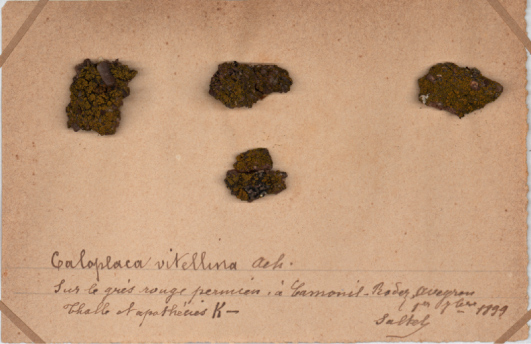 Caloplaca vitellina Ach.
Sur le grès rouge permien, à Camonil - Rodez, Aveyron
Thalle & apothécies K - 1899
Saltel